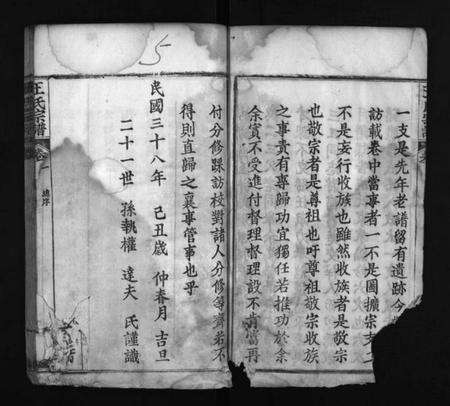 一支是先年老譜留有遺跡今
訪載卷中當事者一不是圖擴宗支二
不是妄行收族也雖然收族者是敬宗
也敬宗者是尊祖也吁尊祖敬宗收族
之事責有專歸功宜獨任若推功於余
余實不受進付督理督理設不肯當再
付分修踩訪校對諸人分修等齊若不
得則直歸之襄事管事也乎
民國三十八年 己丑歲 仲春月 吉旦
二十一世 孫執權 達夫 氏謹識
王氏宗譜
卷一
5